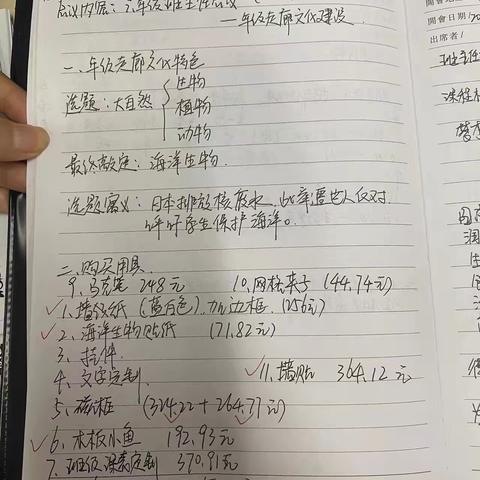 会议内容：三年级班主任会议
—年级走廊文化建设
一、年级走廊文化特色
选题：大自然 { 生物
植物
动物
最终敲定：海洋生物.
选题寓义：日本排放核废水，此举遭世人反对.
呼吁学生保护海洋。
二、购买用具
9、马克笔 248元 10、网格夹子 (44.74元)
✓1、墙纸 (蓝白色)、加边框. (156元)
✓2、海洋生物贴纸 (71.82元)
3、挂件
4、文字定制 ✓11、墙贴 364.12元
5、磁框 (324.22+264.77元)
✓6、木板小鱼 192.93元
7、班级 定制 370.91元
開會日期/20
出席者/
班主任
课程